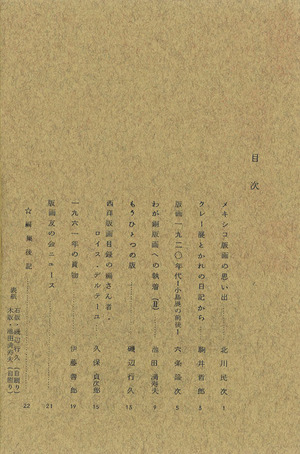 目次
メキシコ版画の思い出……北川民次 1
クレー展とかれの日記から……駒井哲郎 3
版画一九二〇年代―小島展の前後―……六条篤次 5
わが銅版画への執着(Ⅱ)……池田満寿夫 9
もうひとつの版……磯辺行久 13
西洋版画目録の編さん者・
ロイス・デルテーユ……久保貞次郎 15
一九六一年の買物……伊藤善郎 19
版画友の会ニュース……21
☆編集後記……22
表紙 石版・磯辺行久(自刷り)
木版・池田満寿夫(自刷り)